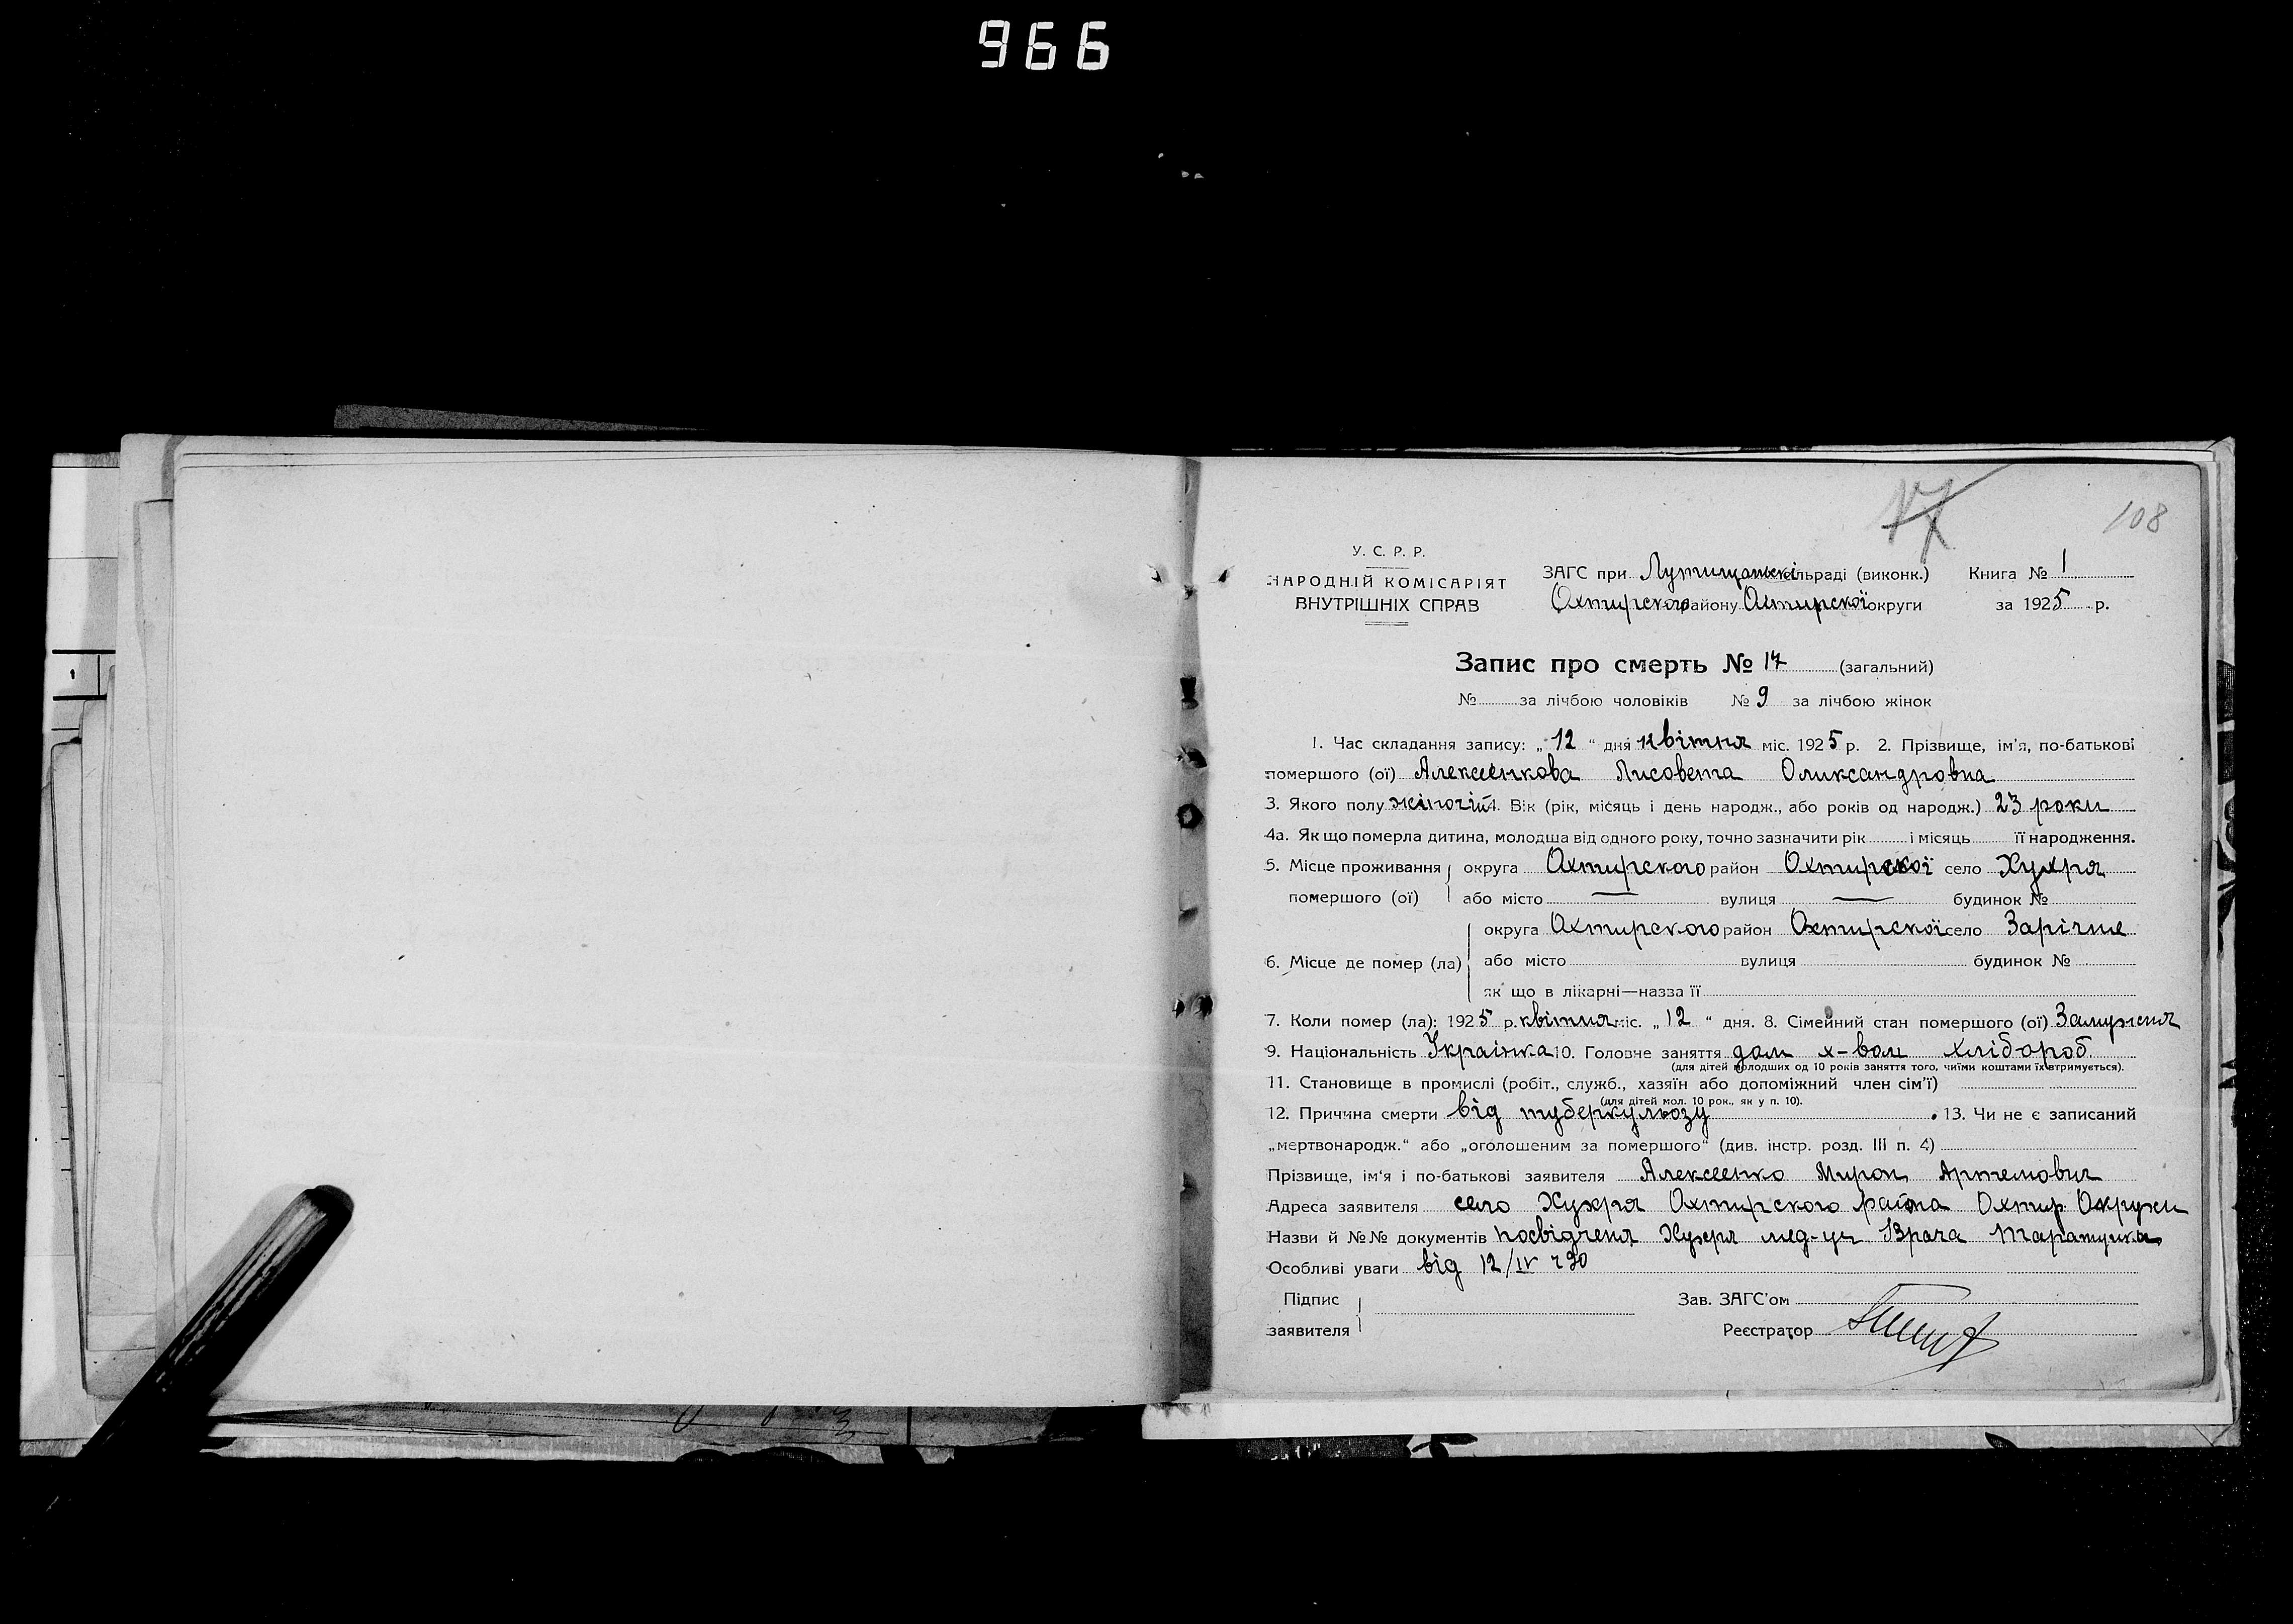 966
17
108
У. С. Р. Р.
НАРОДНІЙ КОМІСАРІЯТ
ВНУТРІШНІХ СПРАВ
ЗАГС при Лутищанські сільраді (виконк.) Книга № 1
Охтирского району Охтирскої округи за 1925 р.
Запис про смерть № 17 (загальний)
№ за лічбою чоловіків № 9 за лічбою жінок
1. Час складання запису: „ 12 “ дня квітня міс. 1925 р. 2. Прізвище, ім'я, по-батькові
помершого (ої) Алексєєнкова Лисовета Оликсандровна
3. Якого полу жіночій 4. Вік (рік, місяць і день народж., або років од народж.) 23 роки
4а. Як що померла дитина, молодша від одного року, точно зазначити рік і місяць її народження.
5. Місце проживання округа Охтирского район Охтирскої село Хухря
помершого (ої) або місто — вулиця — будинок №
округа Охтирского район Охтирскої село Зарічне
6. Місце де помер (ла) або місто вулиця будинок №
як що в лікарні—назва її
7. Коли помер (ла): 1925 р. квітня міс. „ 12 “ дня. 8. Сімейний стан помершого (ої) Замужня
9. Національність Українка 10. Головне заняття дом х-вом хлібороб.
(для дітей молодших од 10 років заняття того, чиїми коштами їх втримується).
11. Становище в промислі (робіт., служб., хазяїн або допоміжний член сім'ї)
(для дітей мол. 10 рок., як у п. 10).
12. Причина смерти від туберкульозу 13. Чи не є записаний
„мертвонародж.“ або „оголошеним за помершого“ (див. інстр. розд. III п. 4)
Прізвище, ім'я і по-батькові заявителя Алексеенко Мирон Артемович
Адреса заявителя село Хухря Охтирского района Охтир. Округи
Назви й №№ документів посвідченя Хухря мед-уч Врача
Особливі уваги від 12/IV ч 90
Підпис Зав. ЗАГС'ом
заявителя Реєстратор